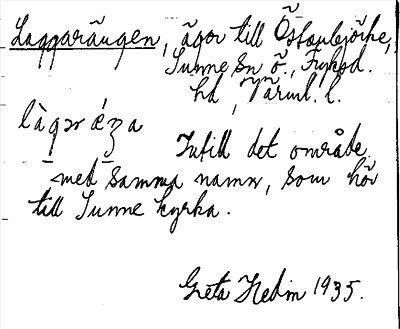 Laggarängen, ägor till Östanbjörke,
Sunne sn ö., Fryksd.
hd, Värml. l.
làgər ǽŋa
Intill det område
med samma namn, som hör
till Sunne kyrka.
Greta Hedin 1935.